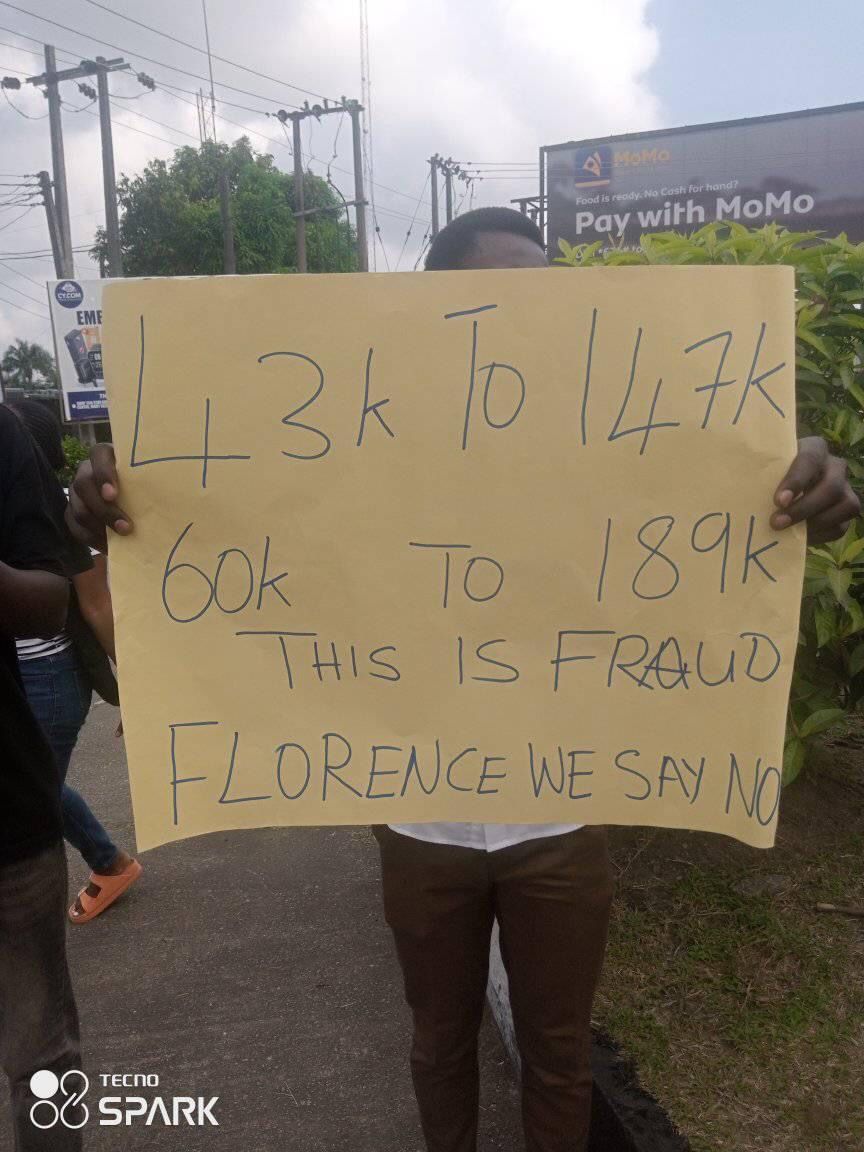 MoMo
Food is ready. No Cash for hand?
Pay with MoMo
CY.COM
EME
43k To 147k
60k To 189k
THIS IS FRAUD
FLORENCE WE SAY NO
TECNO
SPARK